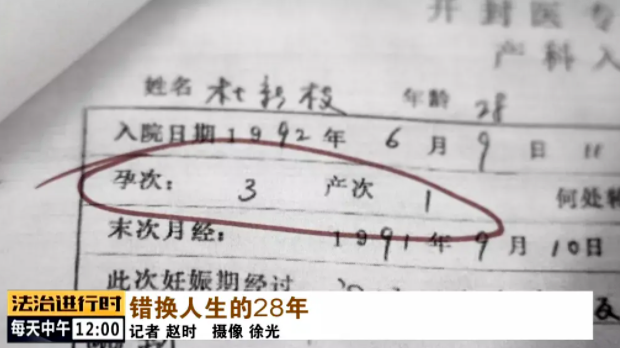 开封医专
产科入
姓名 杜新枝 年龄 28
入院日期 1992年 6月 9日 11
孕次: 3 产次 1 何处转
末次月经: 1991年9月10日
此次妊娠期经过
法治进行时
错换人生的28年
每天中午 12:00
记者 赵时 摄像 徐光